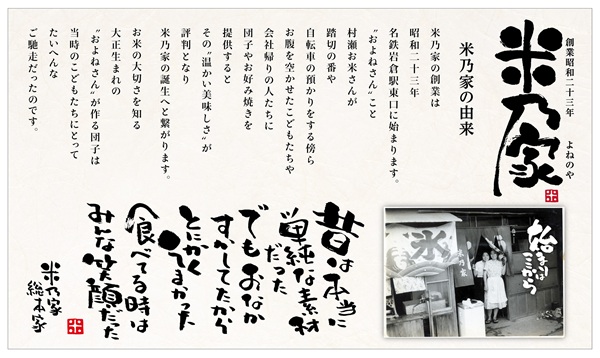 創業昭和二十三年　よねのや
米乃家
米乃家の由来
米乃家の創業は
昭和二十三年
名鉄岩倉駅東口に始まります。
“およねさん”こと
村瀬お米さんが
踏切の番や
自転車の預かりをする傍ら
お腹を空かせたこどもたちや
会社帰りの人たちに
団子やお好み焼きを
提供すると
その“温かい美味しさ”が
評判となり
米乃家の誕生へと繋がります。
お米の大切さを知る
大正生まれの
“およねさん”が作る団子は
当時のこどもたちにとって
たいへんな
ご馳走だったのです。
始まりはここから
氷
昔は本当に
単純な素材
だった
でもおなか
すかしてたから
とにかく
うまかった
食べてる時は
みんな笑顔だった
米乃家
総本家
米
米